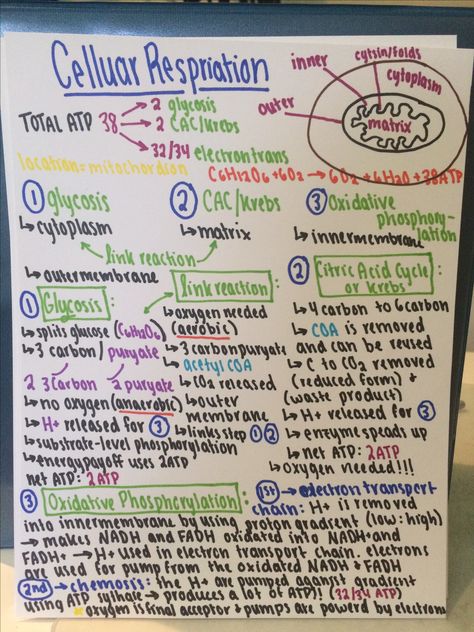 Celluar Respriation
inner
cytsin/folds
cytoplasm
outer
matrix
TOTAL ATP 38
2 glycosis
2 CAC/Krebs
32/34 electrontrans
location= mitochordion
C6H12O6+6O2 → 6O2+6H2O+38ATP
① glycosis
↳ cytoplasm
② CAC/Krebs
↳ matrix
③ Oxidative phosphory-
lation
↳ innermembrane
link reaction
↳ outermembrane
① Glycosis:
↳ splits glucose (C6H12O6)
↳ 3 carbon/puryate
2 3carbon 2 puryate
↳ no oxygen (anaerobic)
↳ H+ released for ③
↳ substrate-level phosphorylation
↳ energypayoff uses 2ATP
net ATP: 2ATP
link reaction:
↳ oxygen needed
(aerobic)
↳ 3 carbonpuryate
↳ acetyl COA
↳ CO2 released
↳ outer
membrane
↳ links step ① ②
② Citric Acid Cycle
or Krebs:
↳ 4 carbon to 6carbon
↳ COA is removed
and can be reused
↳ C to CO2 removed
(reduced form) +
(waste product)
↳ H+ released for ③
↳ enzyme speads up
net ATP: 2ATP
↳ oxygen needed!!!
③ Oxidative Phosphorylation:
1st → electron transport
chain: H+ is removed
into innermembrane by using proton gradient (low:high)
→ makes NADH and FADH oxidated into NADH+ and
FADH+ → H+ used in electron transport chain. electrons
are used for pump from the oxidated NADH & FADH
2nd → chemosis: the H+ are pumped aganst gradient
using ATP sythase → produces a lot of ATP!! (32/34 ATP)
oxygen is final acceptor & pumps are powerd by electrons